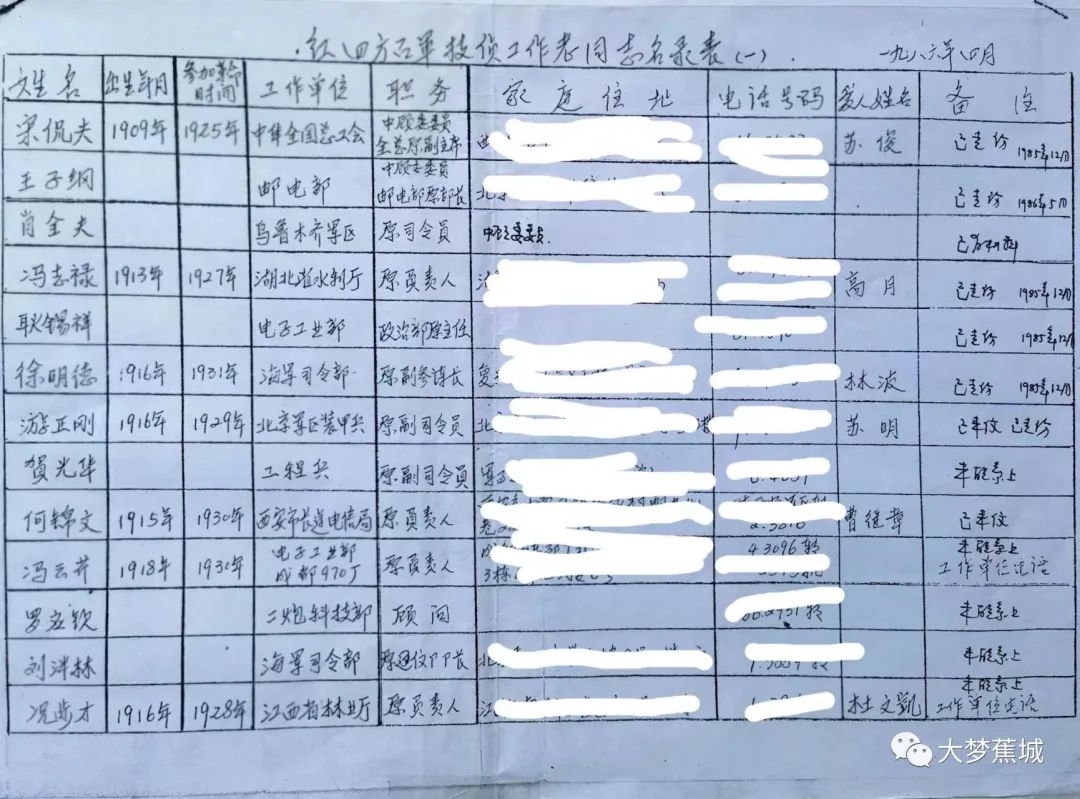 红四方面军技侦工作老同志名录表(一). 一九八六年八月
姓名 出生年月 参加革命时间 工作单位 职务 家庭住址 电话号码 爱人姓名 备注
宋侃夫 1909年 1925年 中华全国总工会 中顾委委员 全总原副主席 苏俊 已走访 1985年12月
王子纲 邮电部 中顾委委员 邮电部原部长 北 已走访 1986年5月
肖全夫 乌鲁木齐军区 原司令员 中顾委委员
冯志禄 1913年 1927年 湖北省水利厅 原负责人 高月 已走访 1985年12月
耿锡祥 电子工业部 政治部原主任 已走访 1985年12月
徐明德 1916年 1931年 海军司令部 原副参谋长 复 林波 已走访 1985年12月
游正刚 1916年 1929年 北京军区装甲兵 原副司令员 北 苏明 已来信 已走访
贺光华 工程兵 原副司令员 未联系上
何锦文 1915年 1930年 西安市长途电信局 原负责人 曹继章 已来信
冯云芥 1918年 1930年 电子工业部 成都970厂 原负责人 3栋 4.3096转 未联系上 工作单位电话
罗应钦 二炮科技部 顾问 未联系上
刘泮林 海军司令部 北 未联系上
况步才 1916年 1928年 江西省林业厅 原负责人 江 杜文凯 未联系上 工作单位电话
大梦蕉城